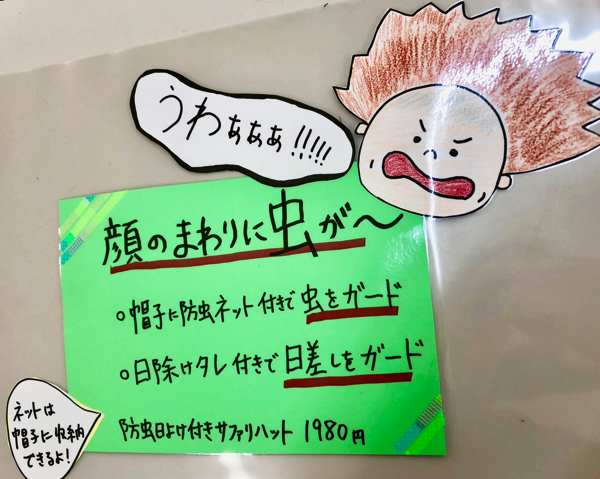 うわぁぁぁ!!!!!
顔のまわりに虫が〜
○帽子に防虫ネット付きで虫をガード
○日除けタレ付きで日差しをガード
防虫日よけ付きサファリハット 1980円
ネットは
帽子に収納
できるよ!